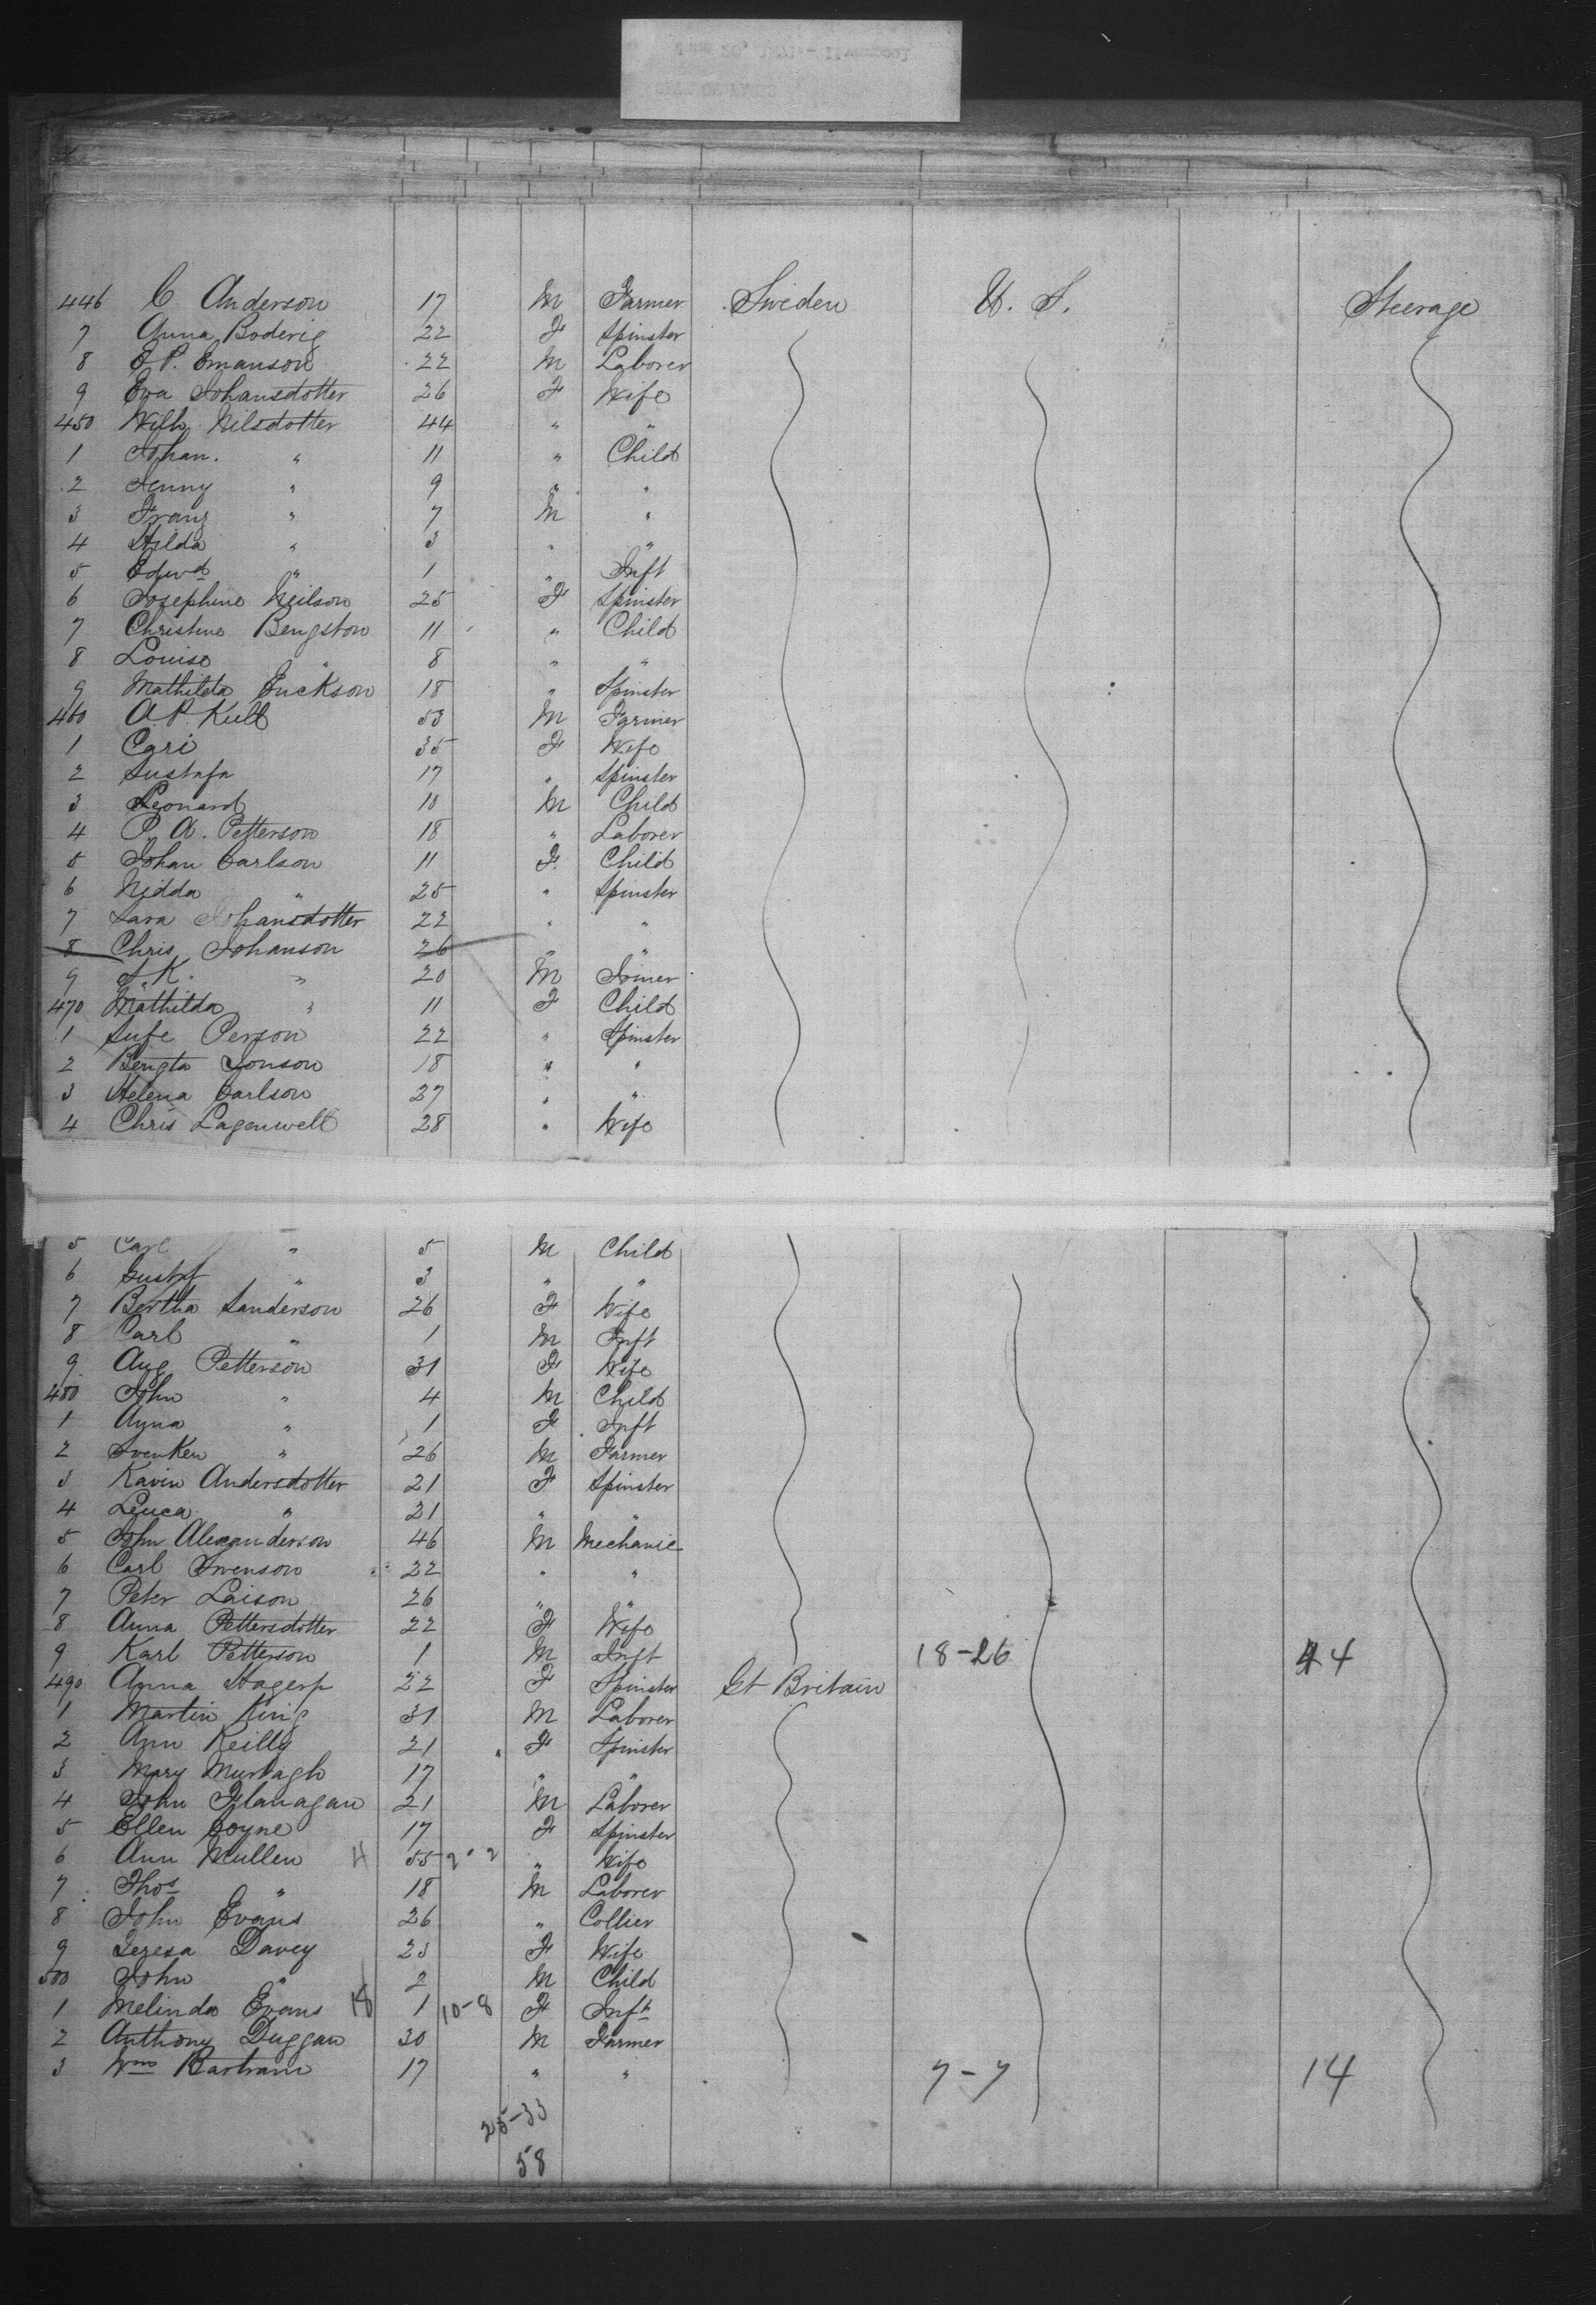 446 C. Anderson 17 M Farmer Sweden U. S. Steerage
7 Anna Boderig 22 F Spinster
8 E. P. Emanson 22 M Laborer
9 Eva Johansdotter 26 F Wife
450 Wilh. Nilsdotter 44 " "
1 Johan. " 11 " Child
2 Jenny " 9 " "
3 Franz " 7 M "
4 Hilda " 3 " "
5 Edwd " 1 " Inft
6 Josephine Neilson 25 F Spinster
7 Christine Bengston 11 " Child
8 Louise " 8 " "
9 Mathilda Erickson 18 " Spinster
460 A. P. Kull 53 M Farmer
1 Cari 35 F Wife
2 Gustafa 17 " Spinster
3 Leonard 10 M Child
4 P. A. Petterson 18 " Laborer
5 Johan Carlson 11 F. Child
6 Nidda " 25 " Spinster
7 Sara Johansdotter 22 " "
8 Chris Johanson 26 " "
9 J. K. " 20 M Joiner
470 Mathilda " 11 F Child
1 Sufe Person 22 " Spinster
2 Bengta Jonson 18 " "
3 Helena Carlson 27 " "
4 Chris Lagenwell 28 " Wife
5 Carl " 5 M Child
6 Gustaf " 3 " "
7 Bertha Sanderson 26 F Wife
8 Carl " 1 M Inft
9 Aug Petterson 31 F Wife
480 John " 4 M Child
1 Anna " 1 F Inft
2 Svenken " 26 M Farmer
3 Kavin Andersdotter 21 F Spinster
4 Leuca " 21 " "
5 John Alexanderson 46 M Mechanic
6 Carl Swenson 22 " "
7 Peter Laison 26 " "
8 Anna Pettersdotter 22 F Wife
9 Karl Petterson 1 M Inft 18-26 44
490 Anna Hagerp 22 F Spinster Gt Britain
1 Martin King 31 M Laborer
2 Ann Reilly 21 F Spinster
3 Mary Murtagh 17 " "
4 John Flanagan 21 M Laborer
5 Ellen Coyne 17 F Spinster
6 Ann Mullen 4 55 2-2 " Wife
7 Thos " 18 M Laborer
8 John Evans 26 " Collier
9 Teresa Davey 23 F Wife
500 John " 2 M Child
1 Melinda Evans 18 1 10-8 F Inft
2 Anthony Duggan 30 M Farmer
3 Wm Bartram 17 " " 7-7 14
25-33
58